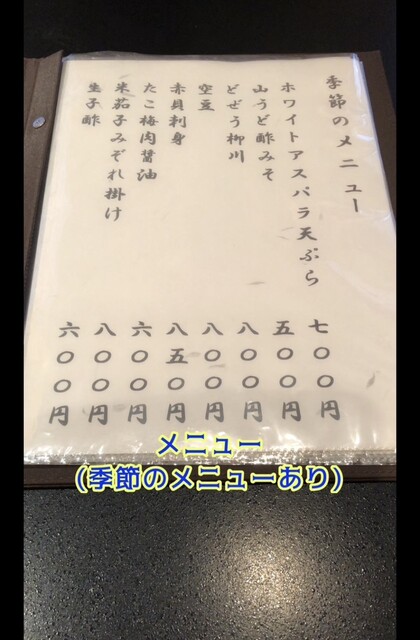 季節のメニュー
ホワイトアスパラ天ぷら 七〇〇円
山うど酢みそ 五〇〇円
どぜう柳川 八〇〇円
空豆 八〇〇円
赤貝刺身 八五〇円
たこ梅肉醤油 六〇〇円
米茄子みぞれ掛け 八〇〇円
生子酢 六〇〇円
メニュー
(季節のメニューあり)